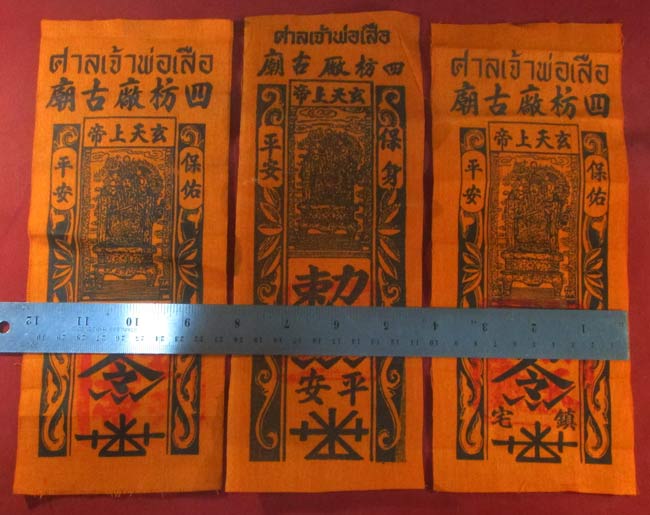 ศาลเจ้าพ่อเสือ
四枋廠古廟
玄天上帝
保佑
平安
ศาลเจ้าพ่อเสือ
四枋廠古廟
玄天上帝
保身
平安
勅
平安
ศาลเจ้าพ่อเสือ
四枋廠古廟
玄天上帝
保佑
平安
鎮宅
1 2 3 4 5 6 7 8 9 10 11 12